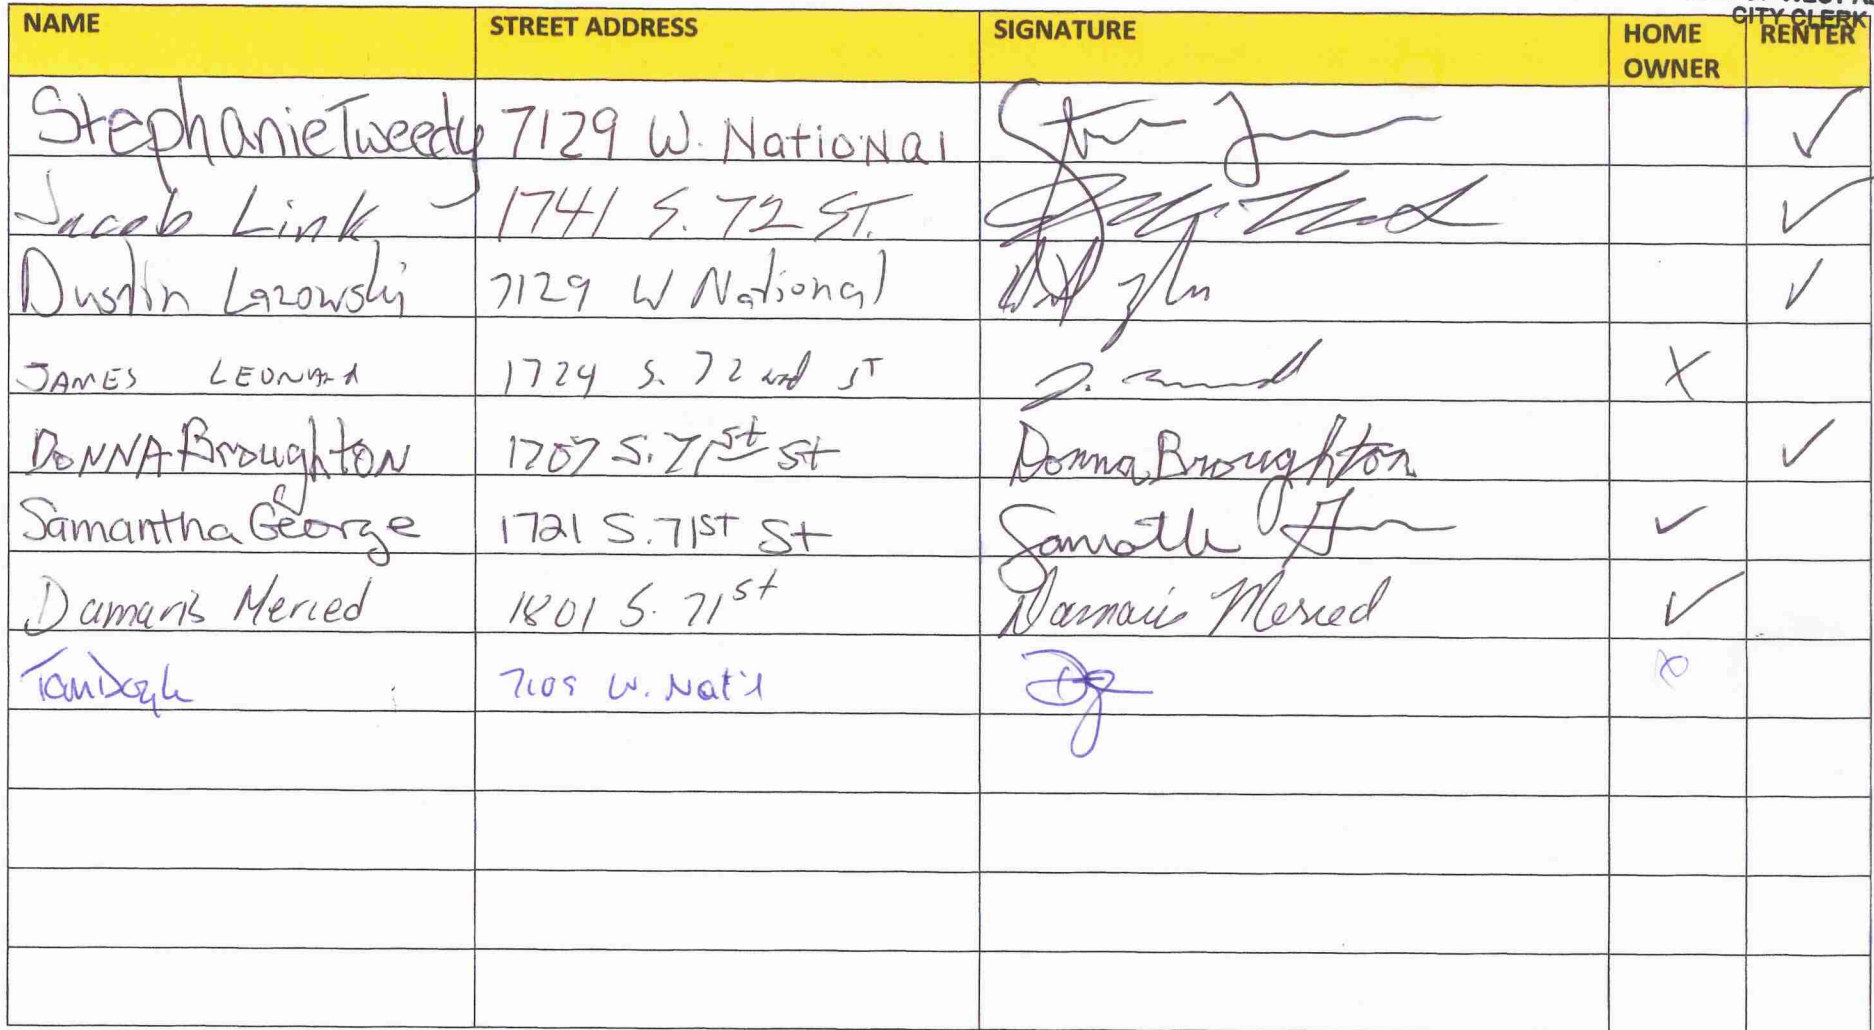 CITY CLERK
NAME STREET ADDRESS SIGNATURE HOME OWNER RENTER
Stephanie Tweedy 7129 W. National ✓
Jacob Link 1741 S. 72 ST. ✓
Dustin Lazowski 7129 W National ✓
JAMES LEONARD 1724 S. 72nd ST X
DONNA Broughton 1707 S. 71st St Donna Broughton ✓
Samantha George 1721 S. 71ST St ✓
Damaris Merced 1801 S. 71st Damaris Merced ✓
W. Nat'l